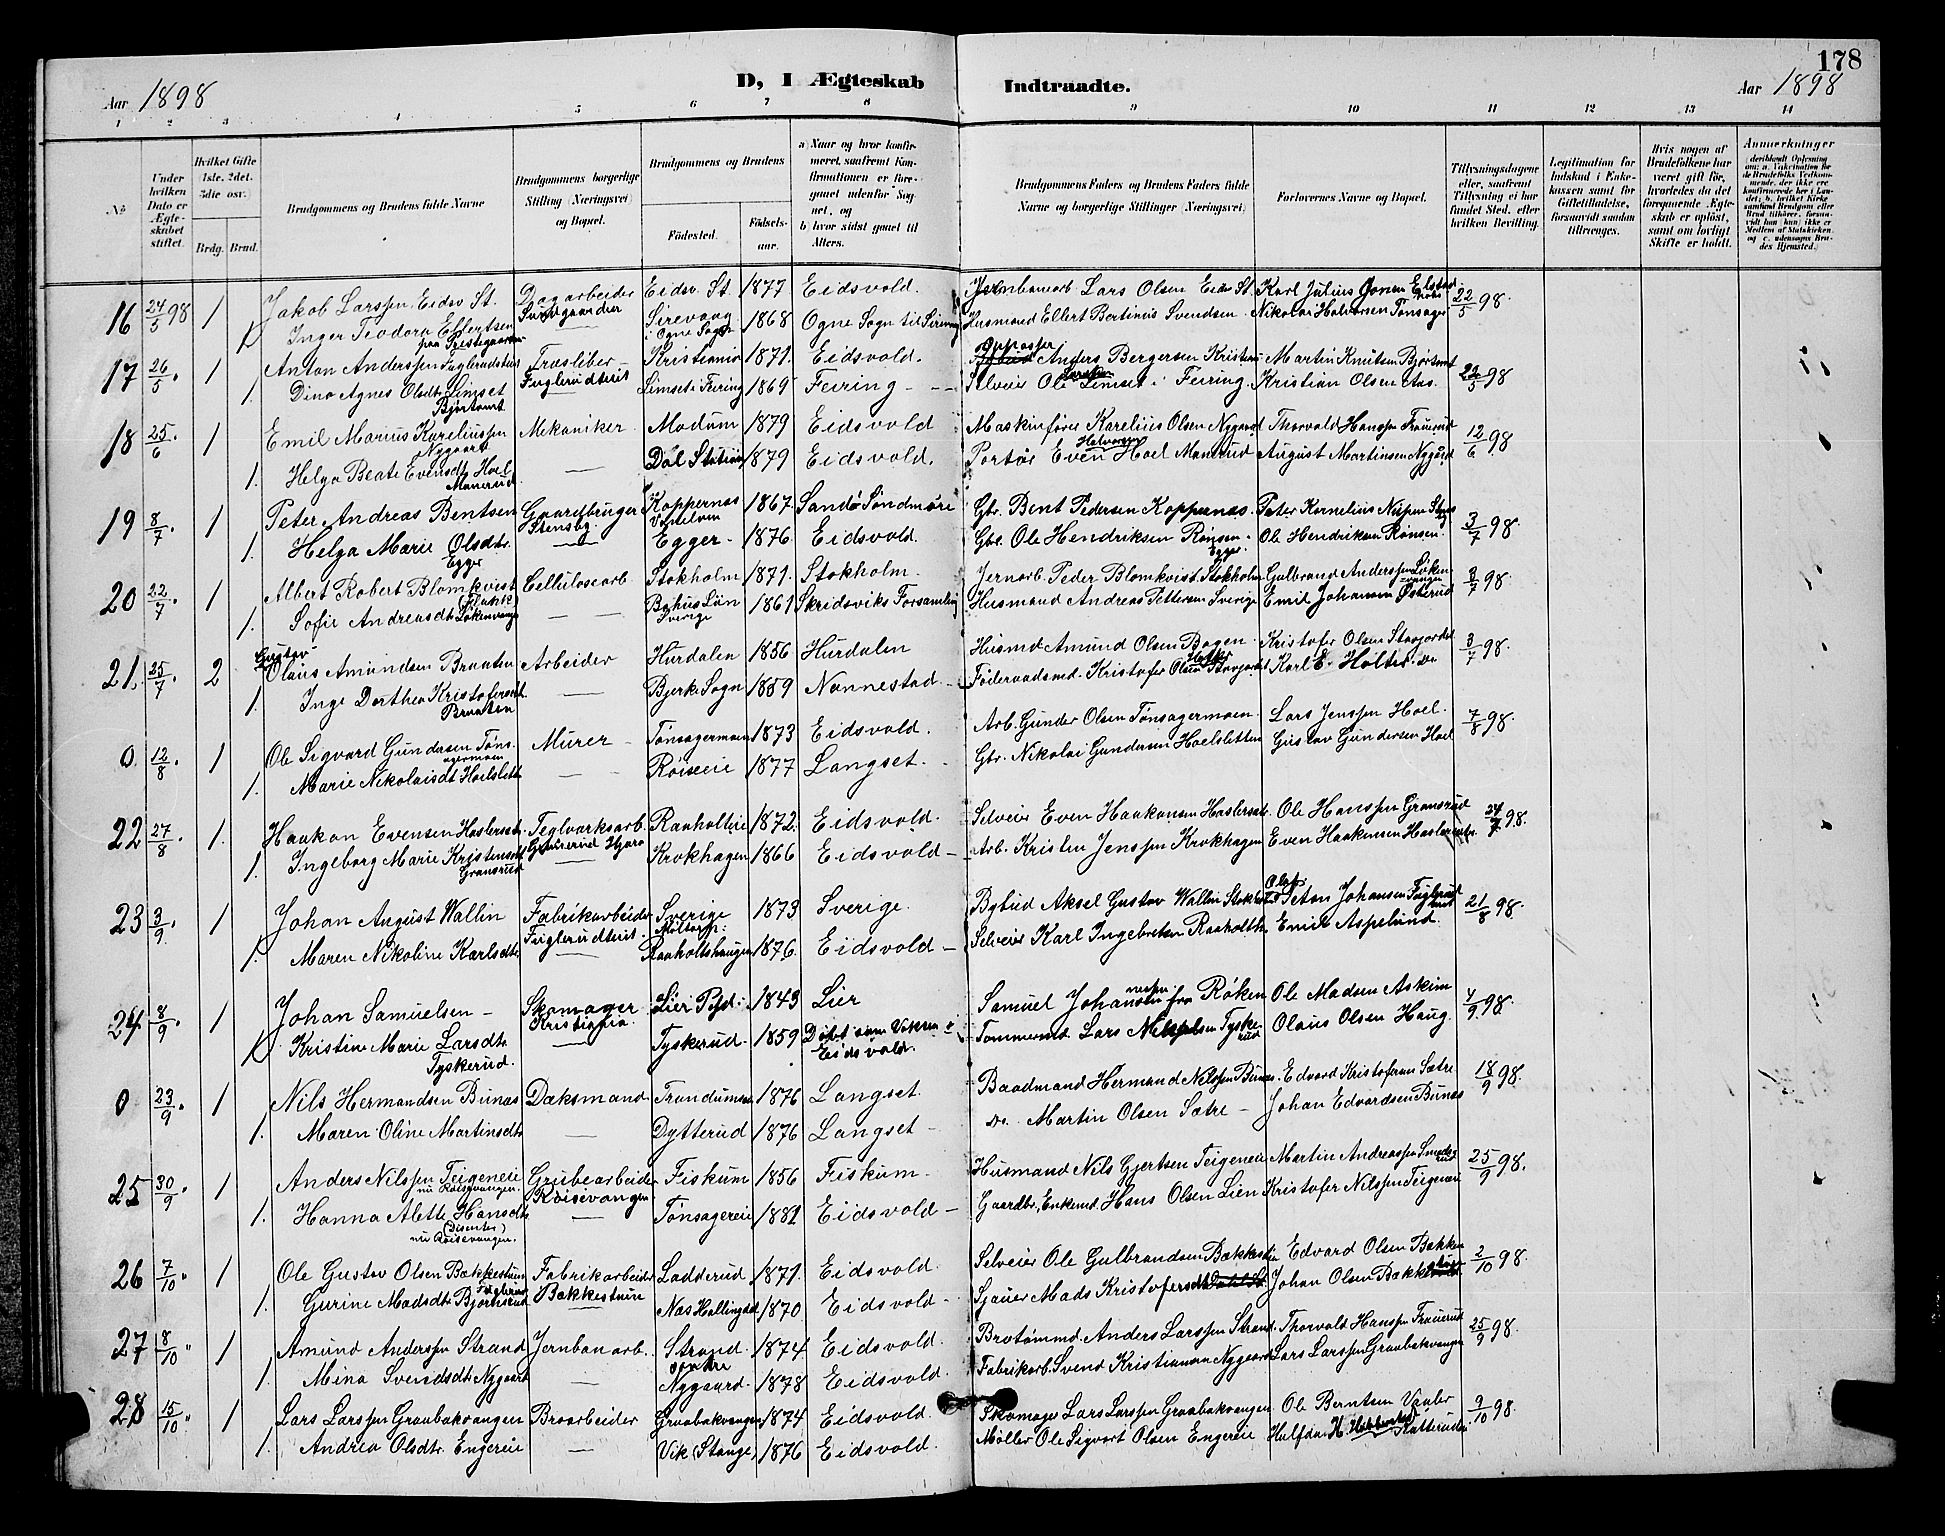 178
Aar 1898
D, I Ægteskab Indtraadte.
Aar 1898
1 2 3 4 5 6 7 8 9 10 11 12 13 14
No.
Under hvilken Dato er Ægteskabet stiftet.
Hvilket Gifte 1ste, 2det, 3die osv.
Brdg. Brud.
Brudgommens og Brudens fulde Navne
Brudgommens borgerlige Stilling (Næringsvei) og Bopæl.
Brudgommens og Brudens
Fødested. Fødselsaar.
a) Naar og hvor konfirmeret, saafremt Konfirmationen er foregaaet udenfor Sognet, og
b) hvor sidst gaaet til Alters.
Brudgommens Faders og Brudens Faders fulde Navne og borgerlige Stillinger (Næringsvei)
Forlovernes Navne og Bopæl.
Tillysningsdagene eller, saafremt Tillysning ei har fundet Sted, efter hvilken Bevilling.
Legitimation for Indskud i Enkekassen samt for Giftetilladelse, forsaavidt saadan tiltrænges.
Hvis nogen af Brudefolkene har været gift før, hvorledes da det foregaaende Ægteskab er opløst, samt om lovligt Skifte er holdt.
Anmerkninger
16 24/5 98 1 Jakob Larssen Eidsv St. Dagarbeider Eidsv. St. 1877 Eidsvold. Jernbanearb Lars Olsen Eidsv St. Karl Julius 22/5 98.
1 Inger Teodora Ellertsen Sirevaag Ogne Sogn 1868 Ogne Sogn til Sirevaag Husmand Ellert Bertinius Svendsen Nikolai Halvorsen Tønsager
paa Prestegaarden
17 26/5 1 Anton Anderssen Fuglerudteiet Træsliber Kristiania 1871. Eidsvold. Anders Bergersen Kristiania Martin Knutsen Bjørtomt 22/5 98
1. Dina Agnes Olsdtr Limset Fuglerudteiet Limset i Feiring 1869 Feiring Selveier Ole Larssen Limset i Feiring. Kristian Olsen Aas.
Bjørtomt
18 25/6 1 Emil Marius Kareliussen Mekaniker Modum 1879 Eidsvold Maskinfører Karelius Olsen Nygaard Thorvald Hanssen Frauerud 12/6 98
Nygaard
1. Helga Beate Evensdtr Hoel Dal Station 1879 Eidsvold. Portør Even Halvorsen Hoel Manerud August Martinsen Nygård
Manerud
19 8/7 1 Peter Andreas Bentsen Gaardbruger Koppernæs 1867. Sandø Søndmøre Gbr. Bent Pedersen Koppernæs. Peter Kornelius 3/7 98
Stensby.
1. Helga Marie Olsdtr. Egger 1876 Eidsvold. Gbr. Ole Hendriksen Rønsen Ole Hendriksen Rønsen.
Egge Egge.
20 22/7 1 Albert Robert Blomkvist Cellulosearb. Stokholm 1871. Stokholm. Jernarb. Peder Blomkvist Stokholm Gulbrand Anderssen Løkenvangen 3/7 98.
1. Sofie Andreasdtr Løkenvangen Bohus Län Sverige 1861 Skridsviks Forsamling Husmand Andreas Pettersen Sverige Emil Johansen Østerud
21. 25/7 2 Gustav Olaus Amundsen Braaten Arbeider Hurdalen 1856 Hurdalen Husmd Amund Olsen Bagen. Kristofer Olsen Storjordet 3/7 98.
1. Inge Dorthea Kristofersdt. Bjerke Sogn 1859 Nannestad Føderaadsmd. Kristofer Olsen Storjordet Karl E. Holter Do
Braaten
0. 12/8 1 Ole Sigvard Gundersen Tønsagermoen Murer Tønsagermoen 1873 Eidsvold. Arb. Gunder Olsen Tønsagermoen. Lars Jenssen Hoel. 7/8 98.
1. Marie Nikolaisdt Hoelslett Røiseeie 1877 Langset. Gbr. Nikolai Gundersen Hoelsletten Gustav Gundersen Hoel
22 27/8 1. Haakon Evensen Haslerset Teglværksarb. Raaholteie 1872. Eidsvold. Selveier Even Haakonsen Haslerset Ole Hanssen Gransrud 24/7 98.
1. Ingeborg Marie Kristensdt Krokhagen 1866 Eidsvold Arb. Kristen Jenssen Krokhagen Even Haakonsen Haslerset
Gransrud
23 3/9 1 Johan August Wallin Fabrikarbeider Sverige 1873 Sverige. Bybud Aksel Gustav Wallin Stokholm Olaf Johansen Fuglerud 21/8 98.
1. Maren Nikoline Karlsdtr Fuglerudteiet Raaholtshaugen 1876. Eidsvold Selveier Karl Ingebretsen Raaholth Emil Aspelund.
24 8/9 1 Johan Samuelsen Skomager Lier Pgd. 1843 Lier Samuel Johannessen fra Røken Ole Madsen Askim 4/9 98.
Kristiania
1. Kristine Marie Larsdtr Tyskerud 1859 Døbt som Voksen Eidsvold. Tømmermd. Lars Nilssen Tyskerud Olaus Olsen Haug.
Tyskerud.
0 23/9 1 Nils Hermandsen Bunæs Dæksmand Trandumsei 1876 Langset. Baadmand Hermand Nilssen Bunæs. Edvard Kristofersen Sætre 18/9 98.
1. Maren Oline Martinsdtr Dytterud 1876 Langset Do. Martin Olsen Sætre Johan Edvardsen Bunæs
25 30/9 1 Anders Nilssen Teigeneie Grubearbeider Fiskum 1856 Fiskum Husmand Nils Gjertsen Teigeneie Martin Andreassen Smedsrud 25/9 98.
nu Røisevangen. Røisevangen
1. Hanna Alette Hansdtr Tønsagereie 1881 Eidsvold Gaardbr. Enkemd. Hans Olsen Lien Kristofer Nilssen Teigeneie
(Disenter)
nu Røisevangen.
26 7/10 1 Ole Gustav Olsen Bækkestuen Fabrikarbeider Ladderud 1871. Eidsvold. Selveier Ole Gulbrandsen Bækkestuen Edvard Olsen Bækken 2/10 98.
1. Gurine Madsdtr Bjørnsrud Bækkestuen Næs Hallingdal 1870. Eidsvold Sjauer Mads Kristofersen Johan Olsen Bækkestuen
27 8/10 1 Amund Anderssen Strand Jernbanearb. Strand 1874 Eidsvold. Brotømmd. Anders Larssen Strand. Thorvald Hanssen Frauerud 25/9 98.
1. Mina Svendsdt. Nygaard Søndre Nygaard. 1878 Eidsvold. Fabrikarb. Svend Kristiansen Nygaard Lars Larssen Graabakvangen
28 15/10 1 Lars Larssen Graabakvangen Broarbeider Graabakvangen 1874 Eidsvold. Skomager Lars Larssen Graabakvangen Ole Berntsen Vaaler 9/10 98.
1. Andrea Olsdtr. Engereie Vik (Stange) 1876 Eidsvold. Møller Ole Sigvart Olsen Engereie Halfdan H. Katterudsn